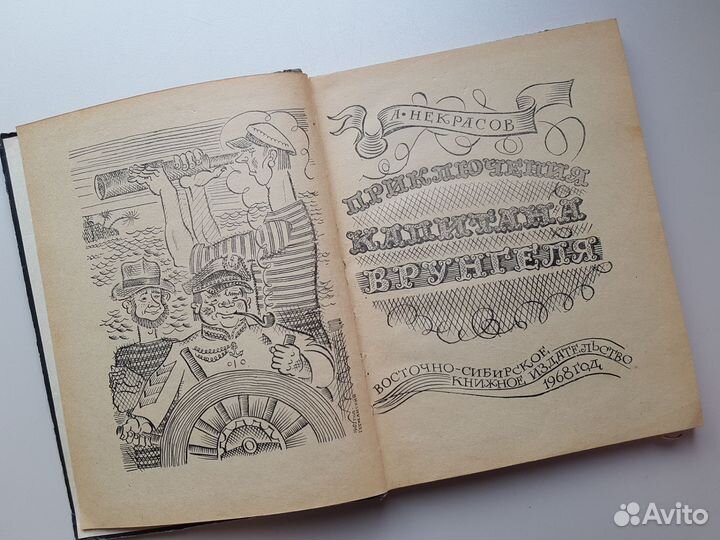 А·НЕКРАСОВ
ПРИКЛЮЧЕНИЯ
КАПИТАНА
ВРУНГЕЛЯ
ВОСТОЧНО-СИБИРСКОЕ
КНИЖНОЕ ИЗДАТЕЛЬСТВО
1968 ГОД
Avito